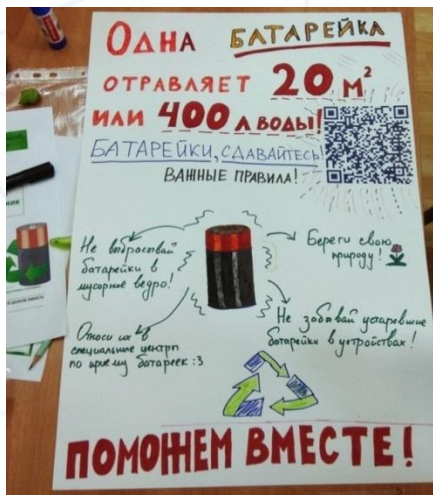 ОДНА БАТАРЕЙКА
ОТРАВЛЯЕТ 20 м²
ИЛИ 400 л ВОДЫ!
БАТАРЕЙКИ, СДАВАЙТЕСЬ
ВАЖНЫЕ ПРАВИЛА!
Не выбрасывай
батарейки в
мусорное ведро!
Береги свою
природу!
Относи их в
специальные центры
по приёму батареек :3
Не забывай устаревшие
батарейки в устройствах!
ПОМОЖЕМ ВМЕСТЕ!